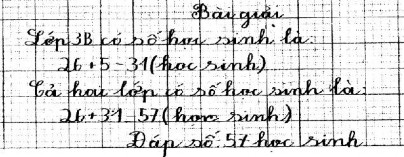 Bài giải
Lớp 3B có số học sinh là:
26 + 5 = 31 (học sinh)
Cả hai lớp có số học sinh là:
26 + 31 = 57 (học sinh)
Đáp số: 57 học sinh